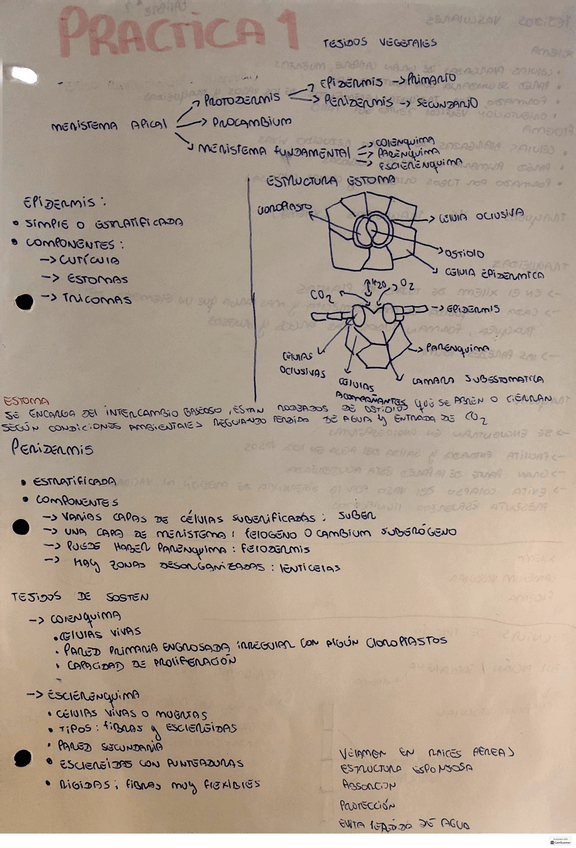 PRACTICA 1
TEJIDOS VEGETALES
MERISTEMA APICAL
→ PROTODERMIS
→ EPIDERMIS → PRIMARIO
→ PERIDERMIS → SECUNDARIO
→ PROCAMBIUM
→ MERISTEMA FUNDAMENTAL
→ COLENQUIMA
→ PARENQUIMA
→ ESCLERENQUIMA
EPIDERMIS:
• SIMPLE O ESTRATIFICADA
• COMPONENTES:
→ CUTÍCULA
→ ESTOMAS
→ TRICOMAS
ESTRUCTURA ESTOMA
CLOROPLASTO
CÉLULA OCLUSIVA
OSTIOLO
CÉLULA EPIDERMICA
CO2
H2O
O2
EPIDERMIS
PARENQUIMA
CÉLULAS OCLUSIVAS
CÉLULAS ACOMPAÑANTES
CAMARA SUBESTOMATICA
ESTOMA
SE ENCARGA DEL INTERCAMBIO GASEOSO, ESTAN RODEADOS DE OSTIOLOS QUE SE ABREN O CIERRAN
SEGÚN CONDICIONES AMBIENTALES REGULANDO PERDIDA DE AGUA Y ENTRADA DE CO2
PERIDERMIS
• ESTRATIFICADA
• COMPONENTES
→ VARIAS CAPAS DE CÉLULAS SUBERIFICADAS: SUBER
→ UNA CAPA DE MERISTEMA: FELOGENO O CAMBIUM SUBERÓGENO
→ PUEDE HABER PARENQUIMA: FELODERMIS
→ HAY ZONAS DESORGANIZADAS: LENTICELAS
TEJIDOS DE SOSTEN
→ COLENQUIMA
• CÉLULAS VIVAS
• PARED PRIMARIA ENGROSADA IRREGULAR CON ALGÚN CLOROPLASTOS
• CAPACIDAD DE PROLIFERACIÓN
→ ESCLERENQUIMA
• CÉLULAS VIVAS O MUERTAS
• TIPOS: FIBRAS Y ESCLEREIDAS
• PARED SECUNDARIA
• ESCLEREIDAS CON PUNTEADURAS
• RIGIDAS; FIBRAS MUY FLEXIBLES
VELAMEN EN RAICES AEREAS
ESTRUCTURA ESPONJOSA
ABSORCION
PROTECCIÓN
EVITA PERDIDO DE AGUA